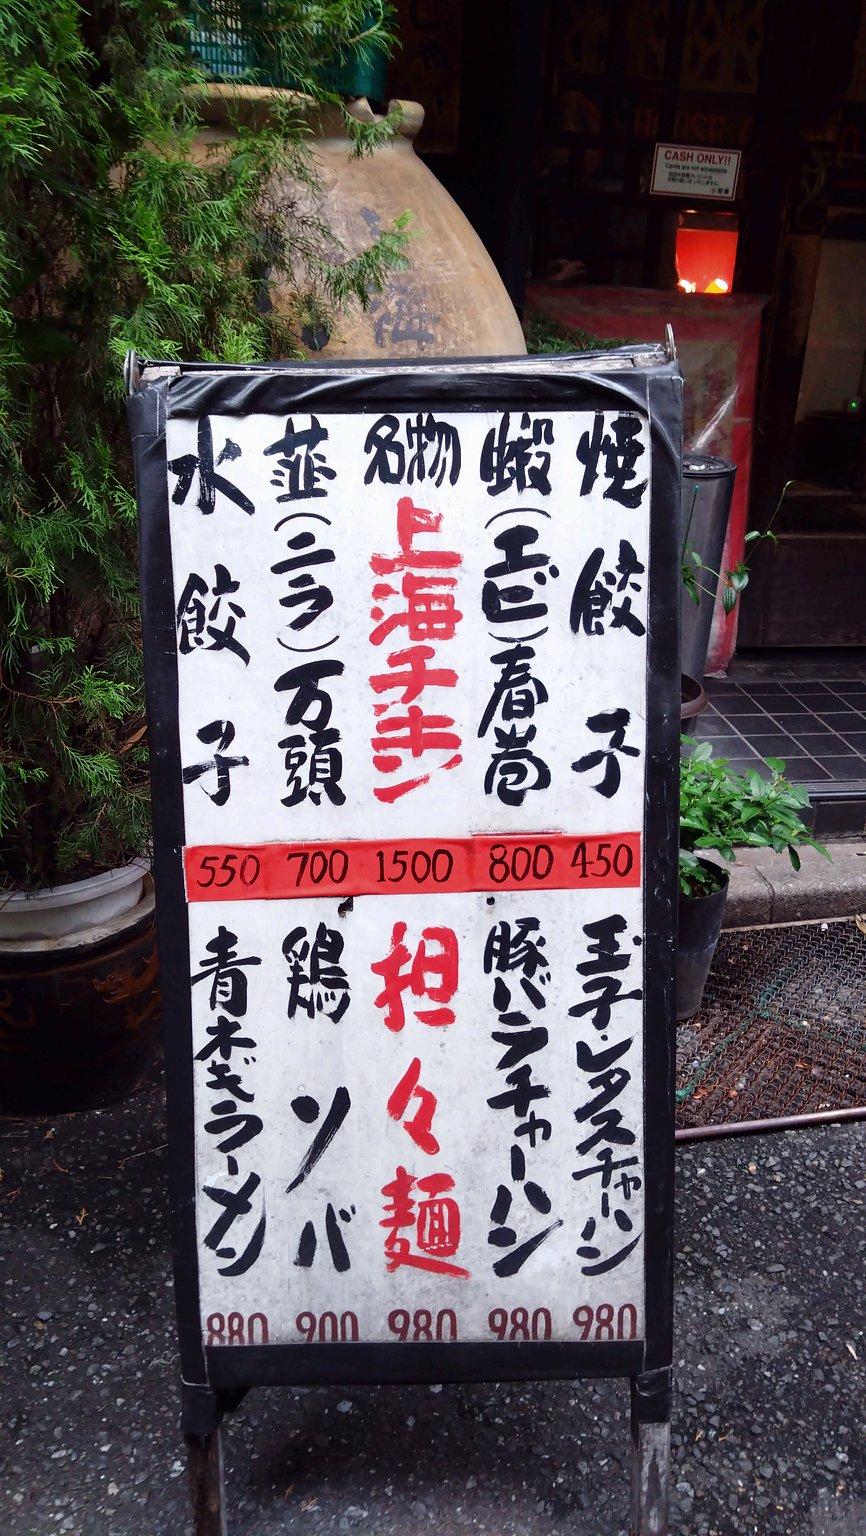 CASH ONLY!!
Cards are not acceptable
焼餃子
蝦(エビ)春巻
名物
上海チキン
韮(ニラ)万頭
水餃子
450
800
1500
700
550
玉子・レタスチャーハン
豚バラチャーハン
担々麺
鶏ソバ
青ネギラーメン
980
980
980
900
880